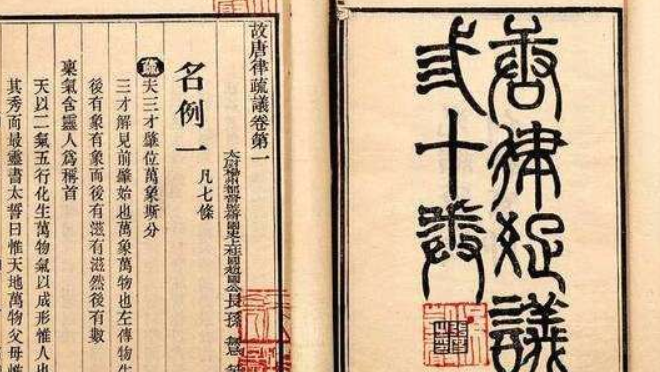 唐律疏議
弎十卷
故唐律疏議卷第一
太尉揚州都督監修國史上柱國趙國公長孫無忌等
名例一 凡七條
疏夫三才肇位萬象斯分
三才解見前肇始也萬象萬物也左傳物生
後有象有象而後有滋有滋然後有數
稟氣含靈人爲稱首
天以二氣五行化生萬物氣以成形惟人也
其秀而最靈書太誓曰惟天地萬物父母惟